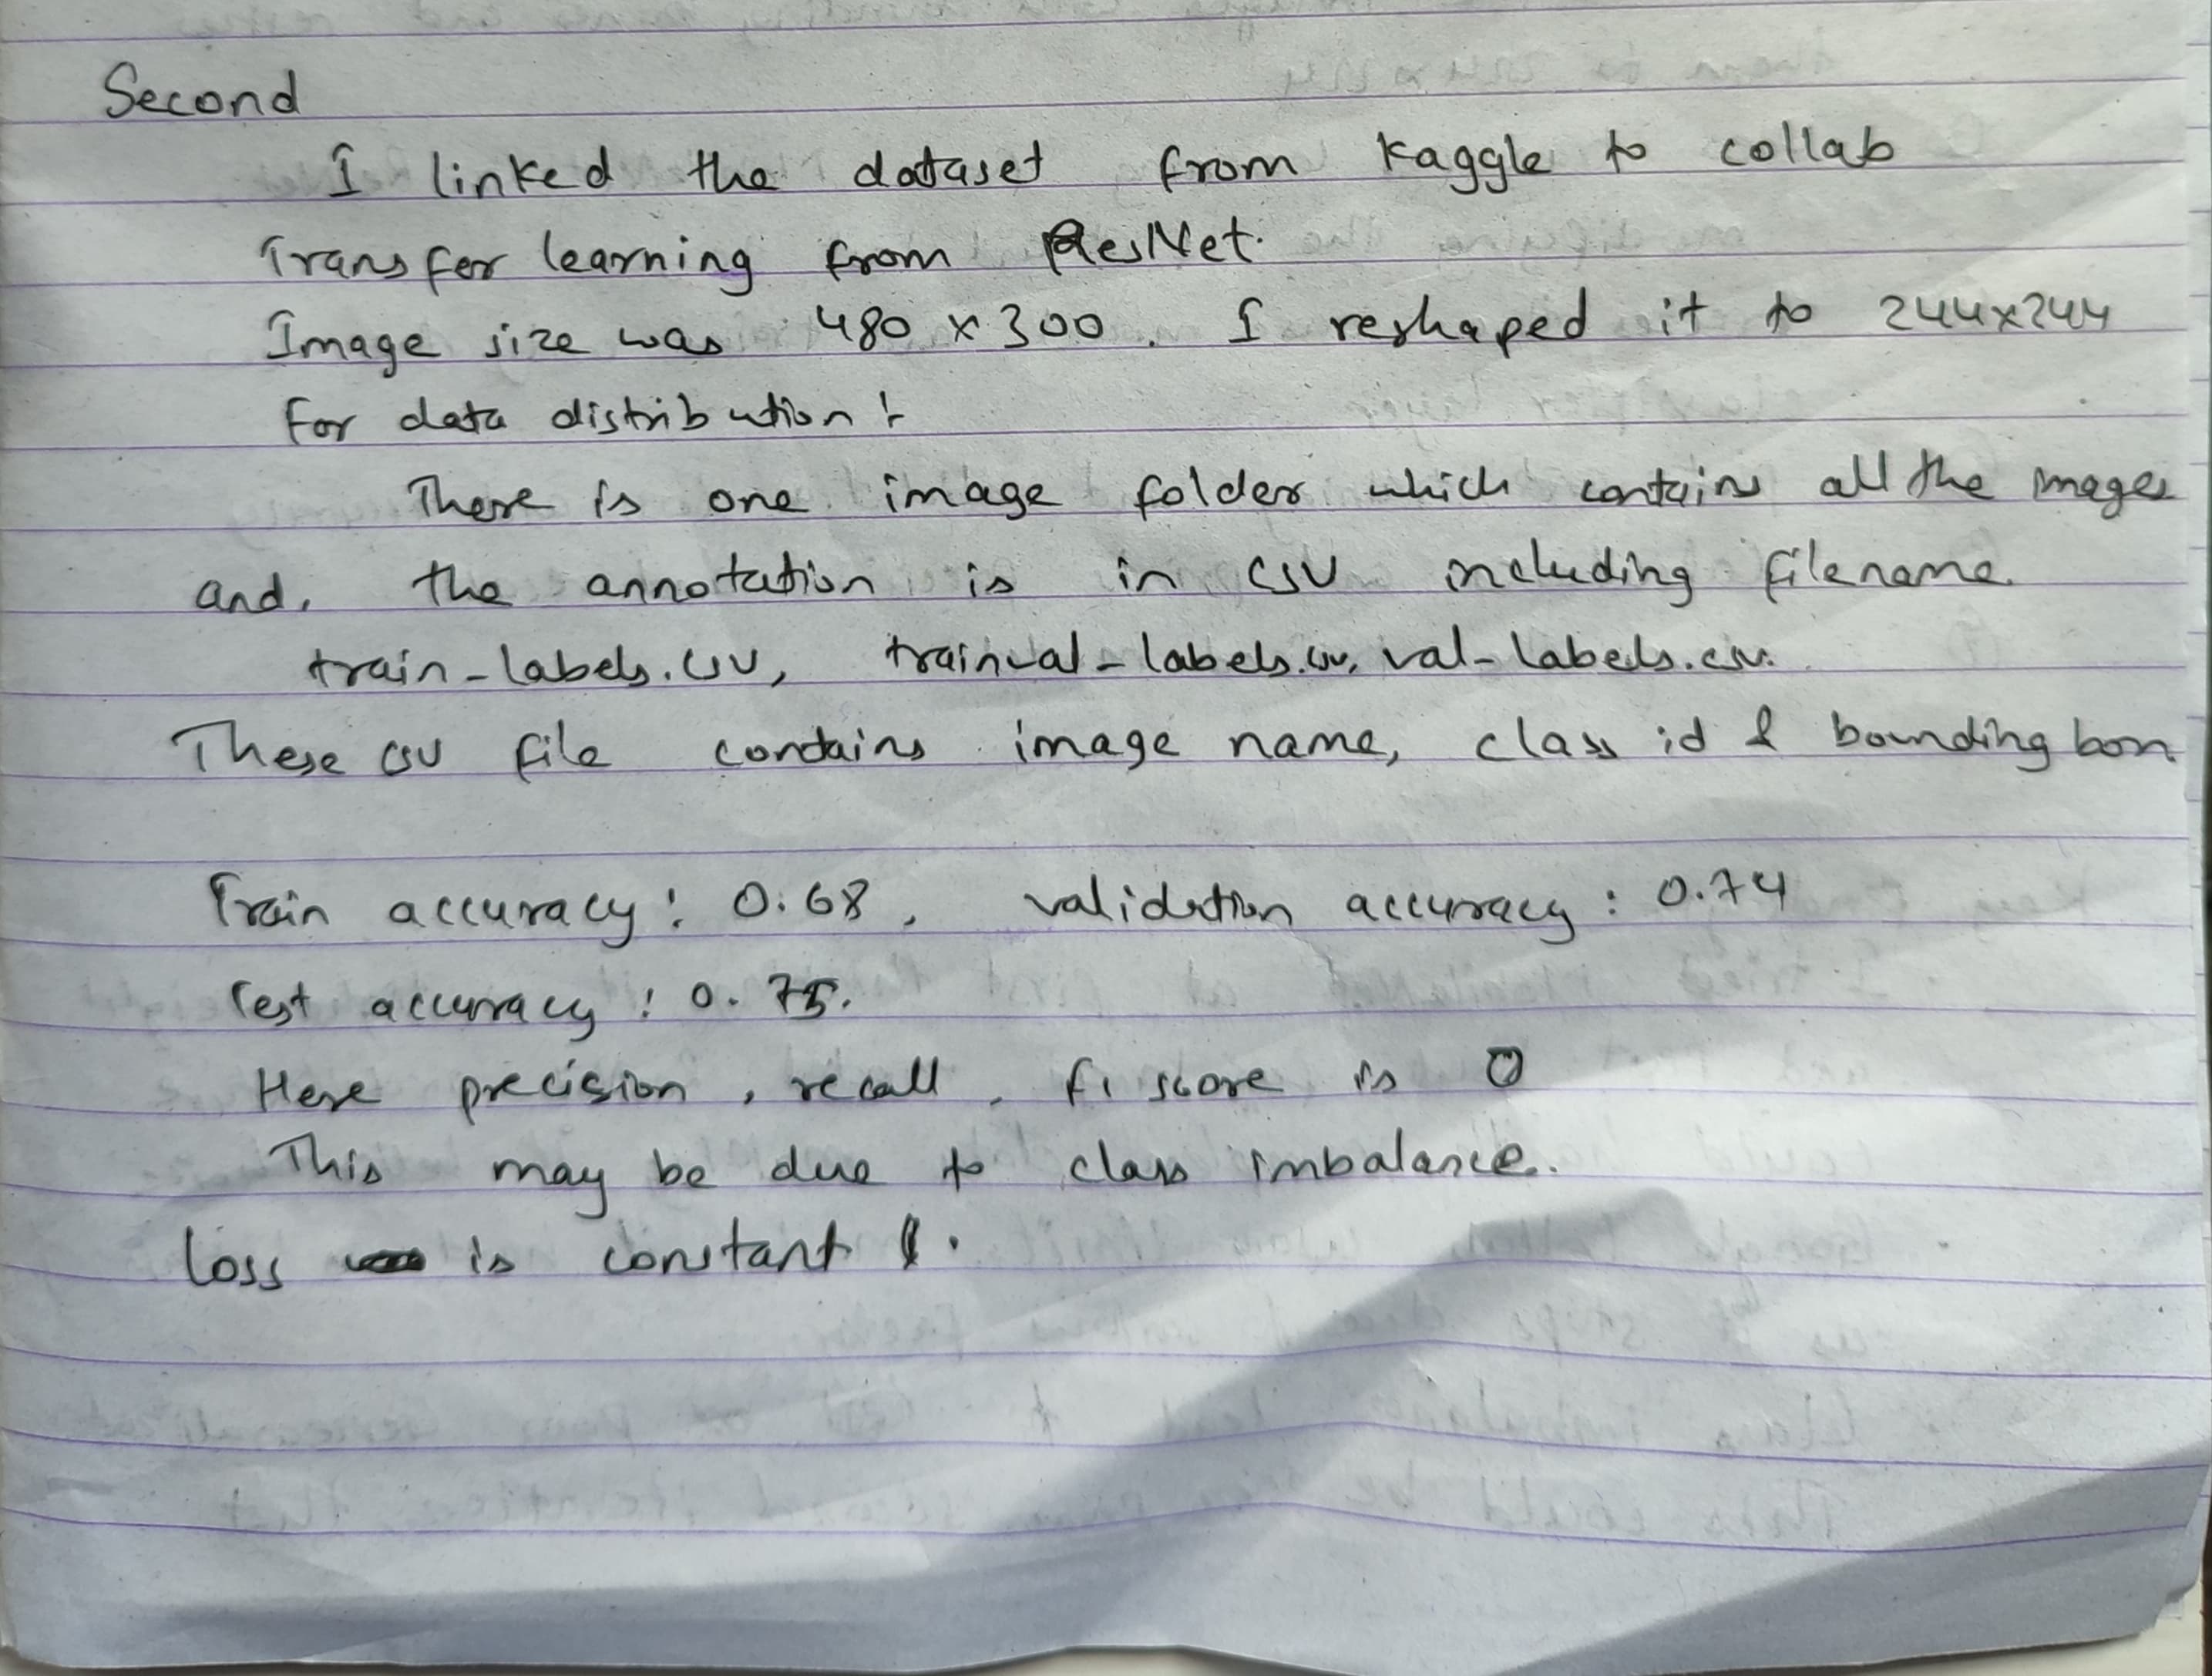 Second
I linked the dataset from Kaggle to collab
Transfer learning from ResNet.
Image size was 480 x 300. I reshaped it to 244x244
For data distribution :
There is one image folder which contains all the images
and, the annotation is in CSV including filename.
train-labels.csv, trainval-labels.csv, val-labels.csv.
These csv file contains image name, class id & bounding box.
Train accuracy : 0.68, validation accuracy : 0.74
Test accuracy : 0.75.
Here precision, recall, f1 score is 0
This may be due to class imbalance.
Loss is constant .